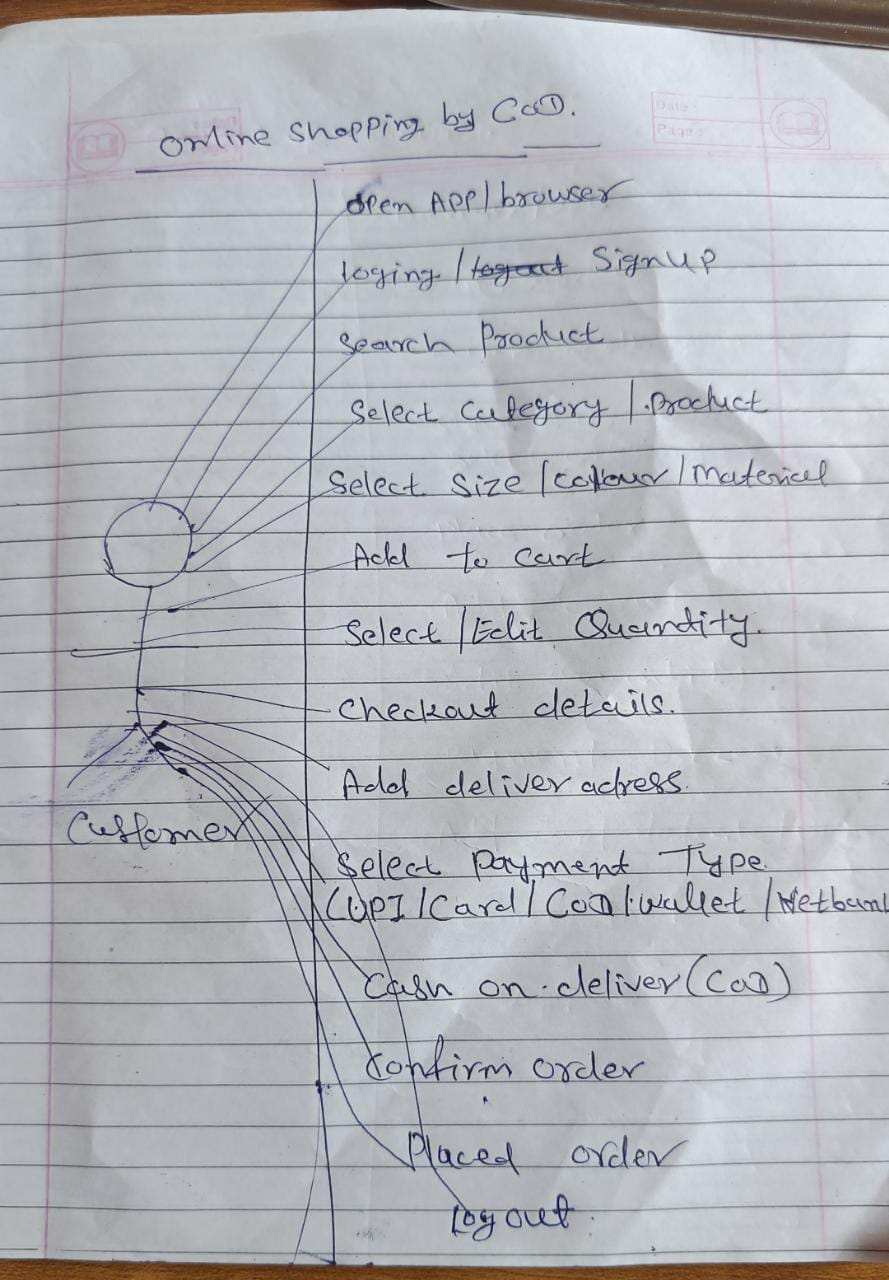 Online shopping by COD.
Date :
Page :
open APP/browser
loging / logout SignUP
Search Product
Select Category / Product
Select Size / Colour / Material
Add to Cart
Select / Edit Quantity.
Checkout details.
Add deliver adress.
Customer
Select Payment Type
(UPI / Card / COD / wallet / Netbank
Cash on deliver (COD)
Confirm order
Placed order
Log out.